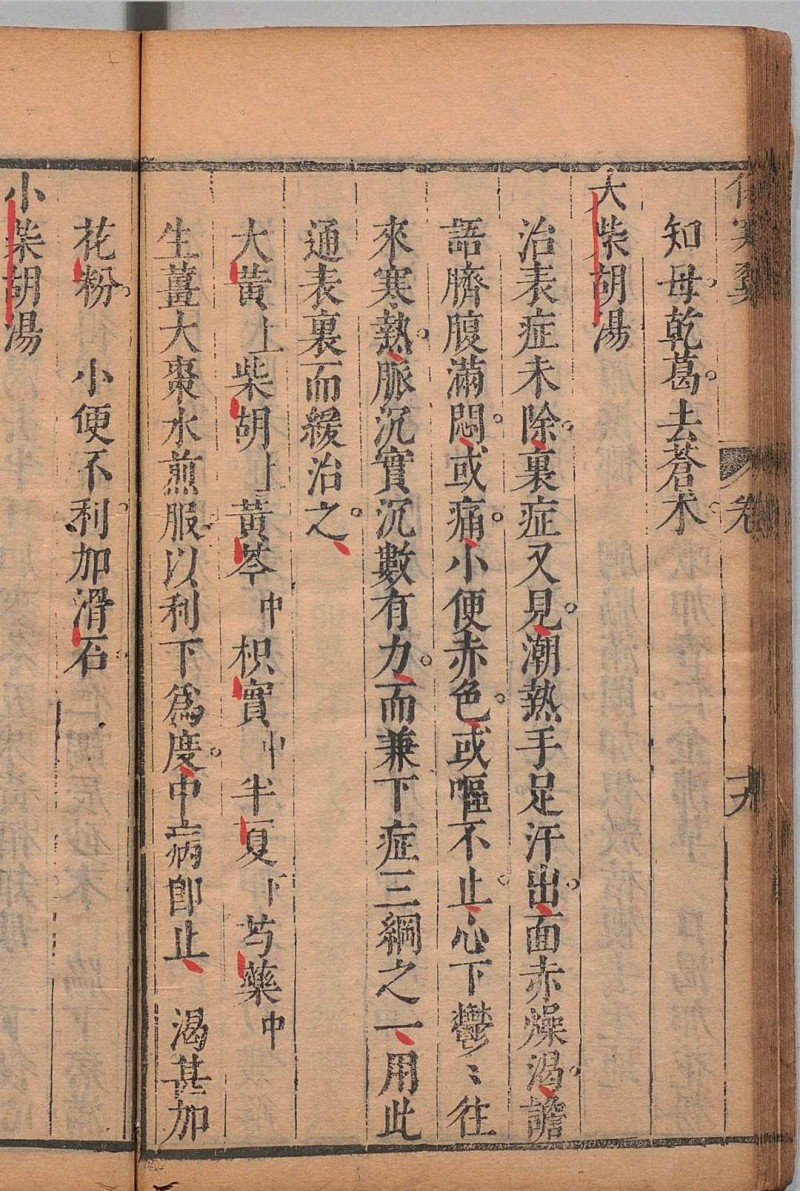 知母。乾葛。去蒼朮。
大柴胡湯
治表症未除。裏症又見。潮熱手足汗出。面赤燥渴。譫
語臍腹滿悶。或痛。小便赤色。或嘔不止。心下鬱〻往
來寒熱。脈沉實沉數有力。而兼下症三綱之一、用此
通表裏而緩治之。
大黃上柴胡上黃芩中枳實中半夏下芍藥中
生薑大棗水煎服。以利下爲度。中病卽止、渴甚加
花粉。小便不利加滑石。
小柴胡湯